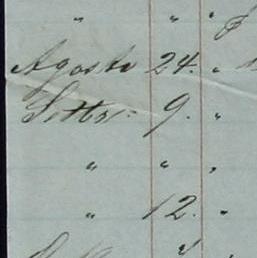 " " "
Agosto 24. "
Settre: 9. "
" " "
" 12. "